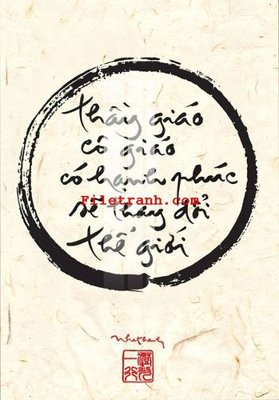 thầy giáo
cô giáo
có hạnh phúc
Filetranh.com
sẽ thay đổi
thế giới
nhất hạnh
一行